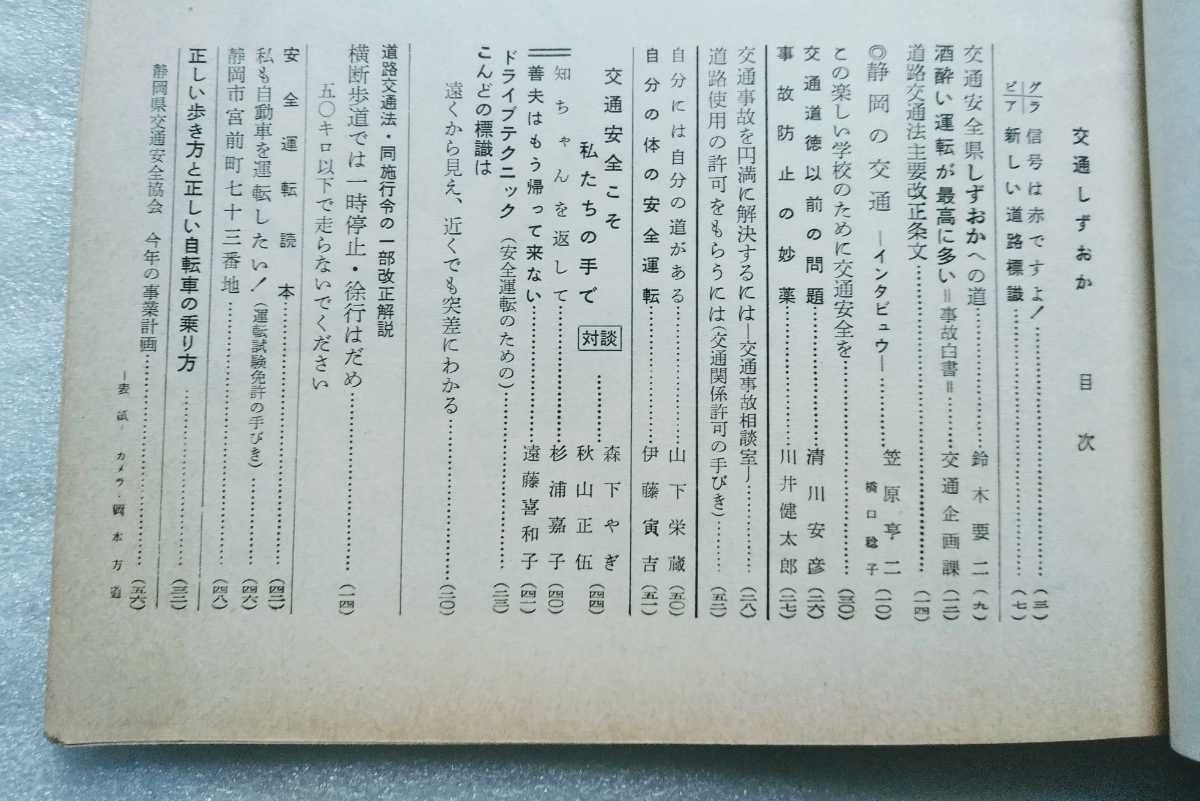 交通しずおか　目次
グラビア 信号は赤ですよ！……（三）
新しい道路標識……（七）
交通安全県しずおかへの道……鈴木要二（九）
酒酔い運転が最高に多い＝事故白書＝……交通企画課（一二）
道路交通法主要改正条文……（一四）
◎静岡の交通　―インタビュウ―……笠原亨二（一〇）
橋口稔子
この楽しい学校のために交通安全を……（三〇）
交通道徳以前の問題……清川安彦（二六）
事故防止の妙薬……川井健太郎（二七）
交通事故を円満に解決するには―交通事故相談室―……（二八）
道路使用の許可をもらうには（交通関係許可の手びき）……（五二）
自分には自分の道がある……山下栄蔵（五〇）
自分の体の安全運転……伊藤寅吉（五一）
交通安全こそ
私たちの手で　対談……森下やぎ
秋山正伍（四四）
知ちゃんを返して……杉浦嘉子（四〇）
善夫はもう帰って来ない……遠藤喜和子（四一）
ドライブテクニック（安全運転のための）……（二三）
こんどの標識は
遠くから見え、近くでも突差にわかる……（二〇）
道路交通法・同施行令の一部改正解説
横断歩道では一時停止・徐行はだめ……（一四）
五〇キロ以下で走らないでください
安全運転読本……（四二）
私も自動車を運転したい！（運転試験免許の手びき）……（四六）
静岡市宮前町七十三番地……（四八）
正しい歩き方と正しい自転車の乗り方……（三二）
静岡県交通安全協会　今年の事業計画……（五六）
―表紙・カメラ・岡本方